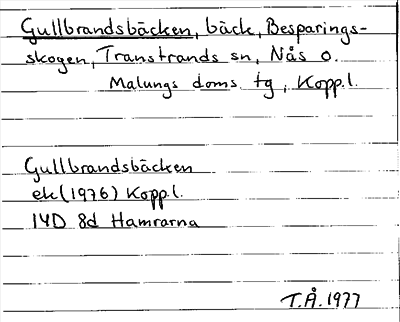 Gullbrandsbäcken, bäck, Besparings-
skogen, Transtrands sn, Nås o.
Malungs doms. tg, Kopp.l.
Gullbrandsbäcken
ek (1976) Kopp.l.
14D 8d Hamrarna
T.Å. 1977